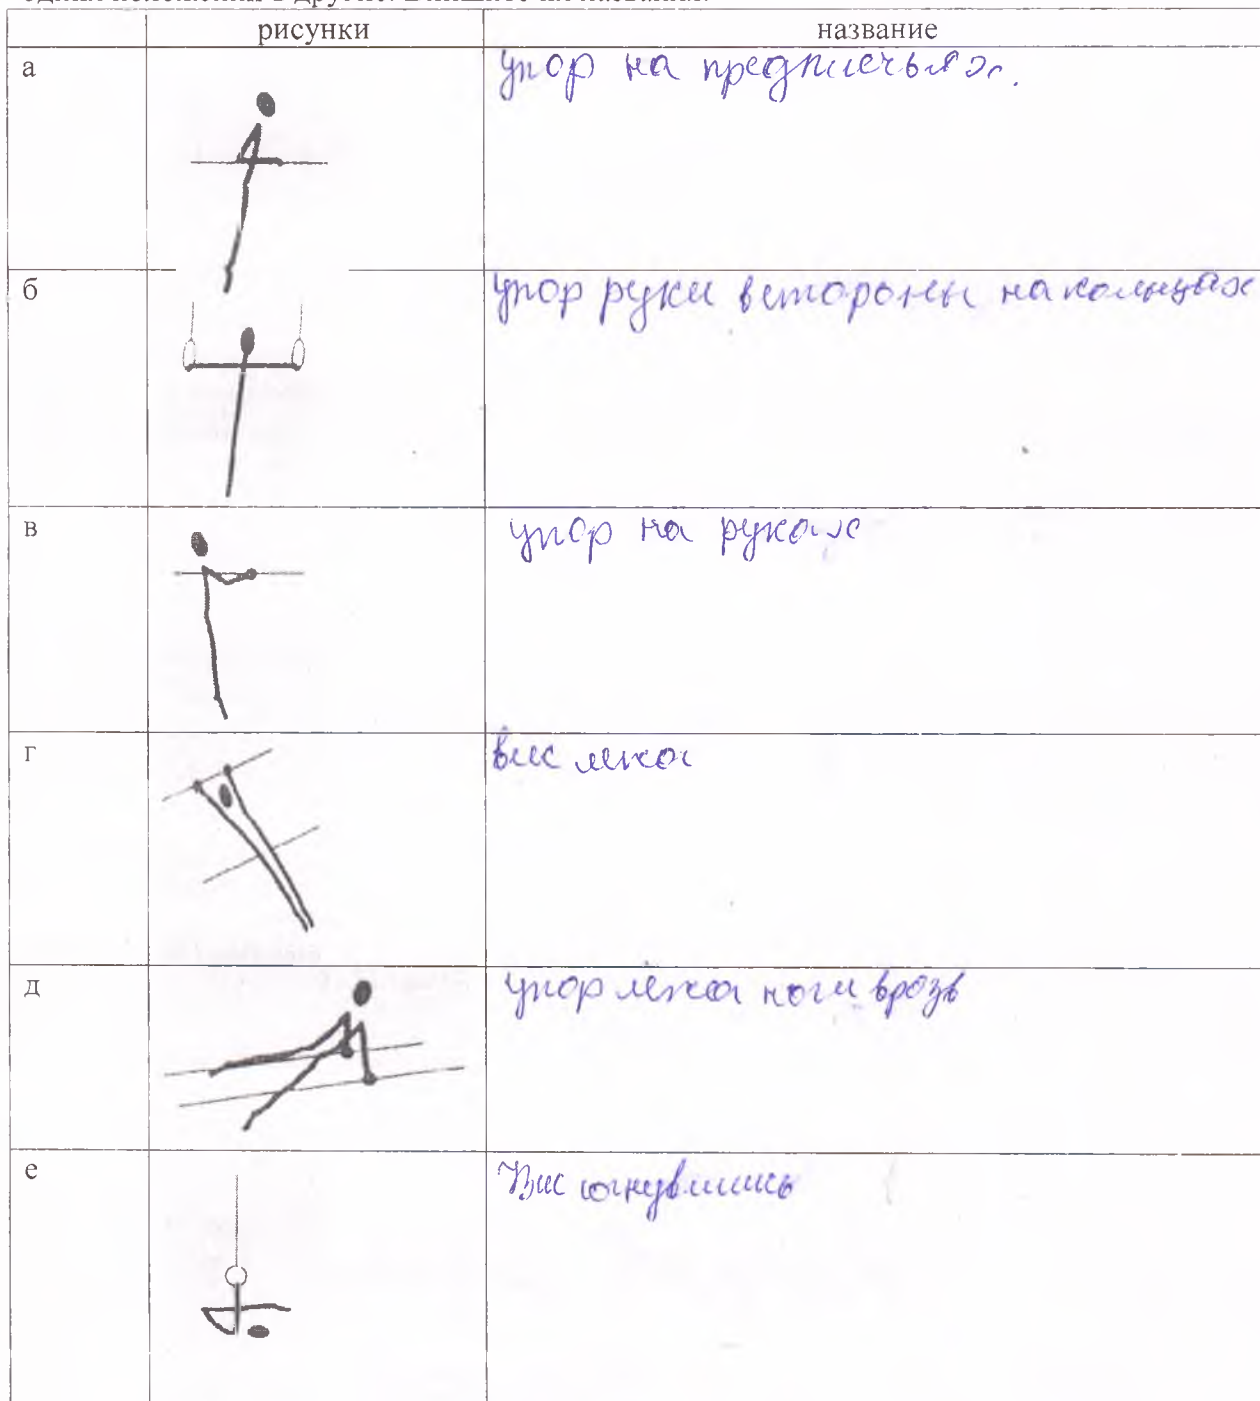 рисунки название
а упор на предплечьях.
б упор руки в стороны на кольцах
в упор на руках
г вис лежа
д упор лёжа ноги врозь
е Вис согнувшись